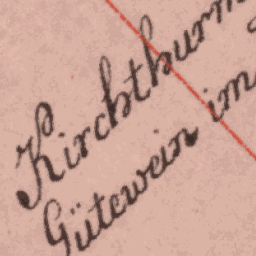 Kirchthurm
Gütewein im